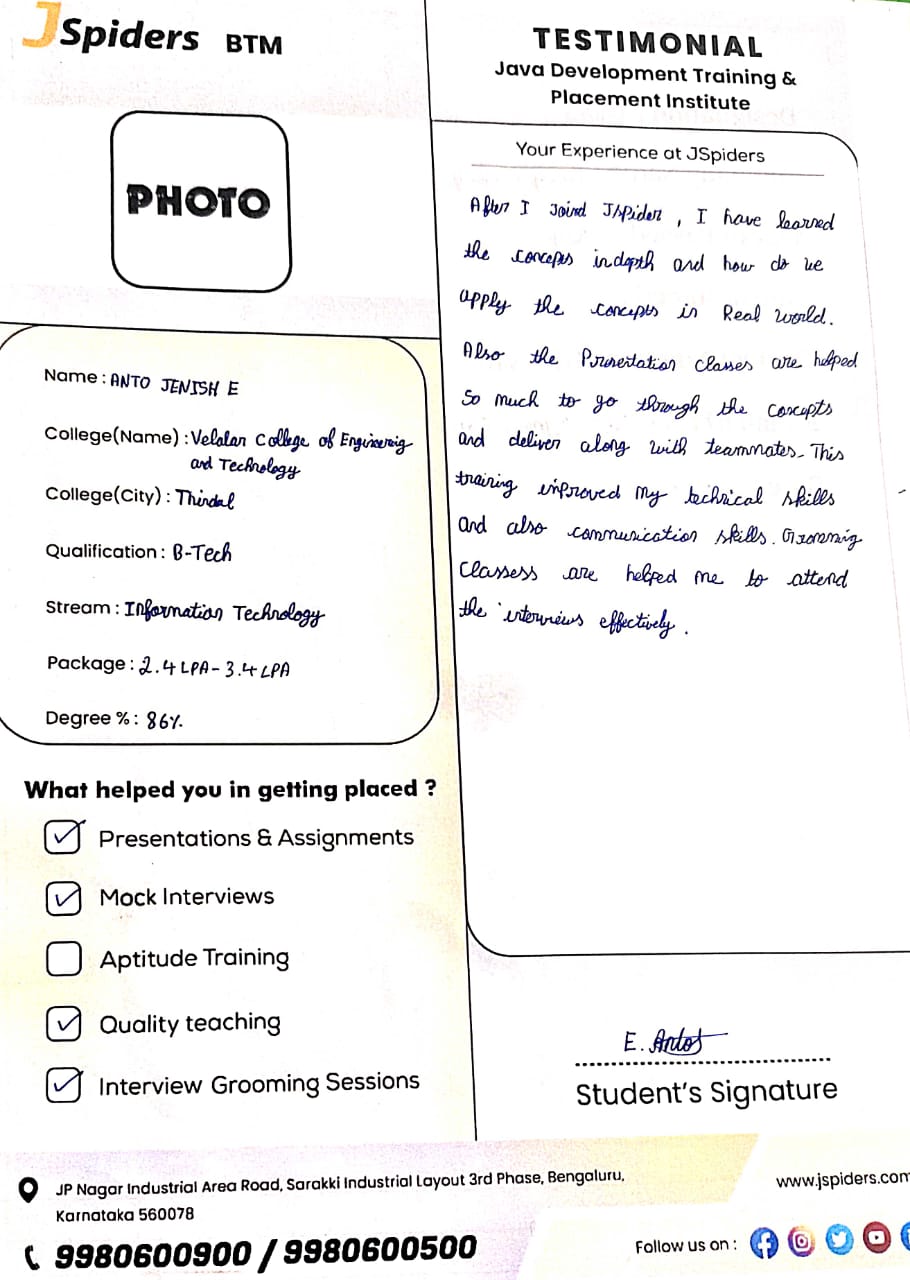 JSpiders BTM
TESTIMONIAL
Java Development Training &
Placement Institute
PHOTO
Name : ANTO JENISH E
College(Name) : Velalar College of Engineerig
and Technology
College(City) : Thindal
Qualification : B-Tech
Stream : Information Technology
Package : 2.4 LPA - 3.4 LPA
Degree % : 86%
What helped you in getting placed ?
Presentations & Assignments
Mock Interviews
Aptitude Training
Quality teaching
Interview Grooming Sessions
Your Experience at JSpiders
After I Joind JSpider , I have learned
the concepts indepth and how do we
apply the concepts in Real world.
Also the Presentation classes are helped
So much to go through the concepts
and deliver along with teammates. This
training improved my technical skills
and also communication skills. Grooming
Classess are helped me to attend
the interviews effectively .
E. Antos
Student's Signature
JP Nagar Industrial Area Road, Sarakki Industrial Layout 3rd Phase, Bengaluru,
Karnataka 560078
9980600900 / 9980600500
www.jspiders.com
Follow us on :